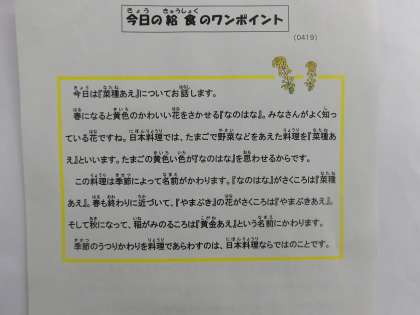 今日の給食のワンポイント
(0419)
今日は『菜種あえ』についてお話します。
春になると黄色のかわいい花をさかせる『なのはな』。みなさんがよく知っ
ている花ですね。日本料理では、たまごで野菜などをあえた料理を『菜種あ
え』といいます。たまごの黄色い色が『なのはな』を思わせるからです。
この料理は季節によって名前がかわります。『なのはな』がさくころは『菜種
あえ』。春も終わりに近づいて、『やまぶき』の花がさくころは『やまぶきあえ』。
そして秋になって、稲がみのるころは『黄金あえ』という名前にかわります。
季節のうつりかわりを料理であらわすのは、日本料理ならではのことです。